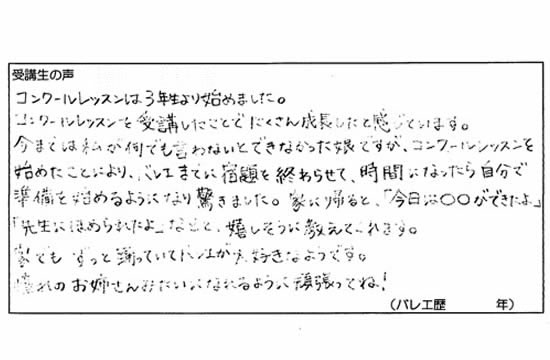 受講生の声
コンクールレッスンは3年生より始めました。
コンクールレッスンを受講したことでたくさん成長したと感じています。
今までは私が何でも言わないとできなかった娘ですが、コンクールレッスンを
始めたことにより、バレエまでに宿題を終わらせて、時間になったら自分で
準備を始めるようになり驚きました。家に帰ると、「今日は○○ができたよ」
「先生にほめられたよ」などと、嬉しそうに教えてくれます。
家でもずっと踊っていてバレエが大好きなようです。
憧れのお姉さんみたいになれるように頑張ってね!
(バレエ歴 年)